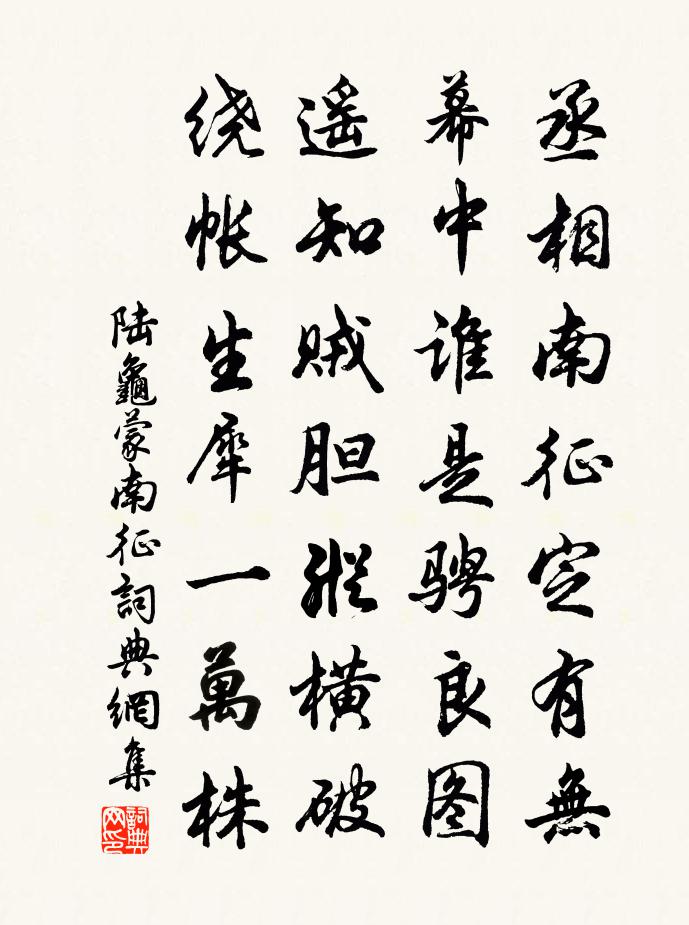 丞相南征定有無
幕中谁是骋良图
遥知贼胆縱横破
绕帐生犀一萬株
陆龜蒙南征詞典網集
詞典网印